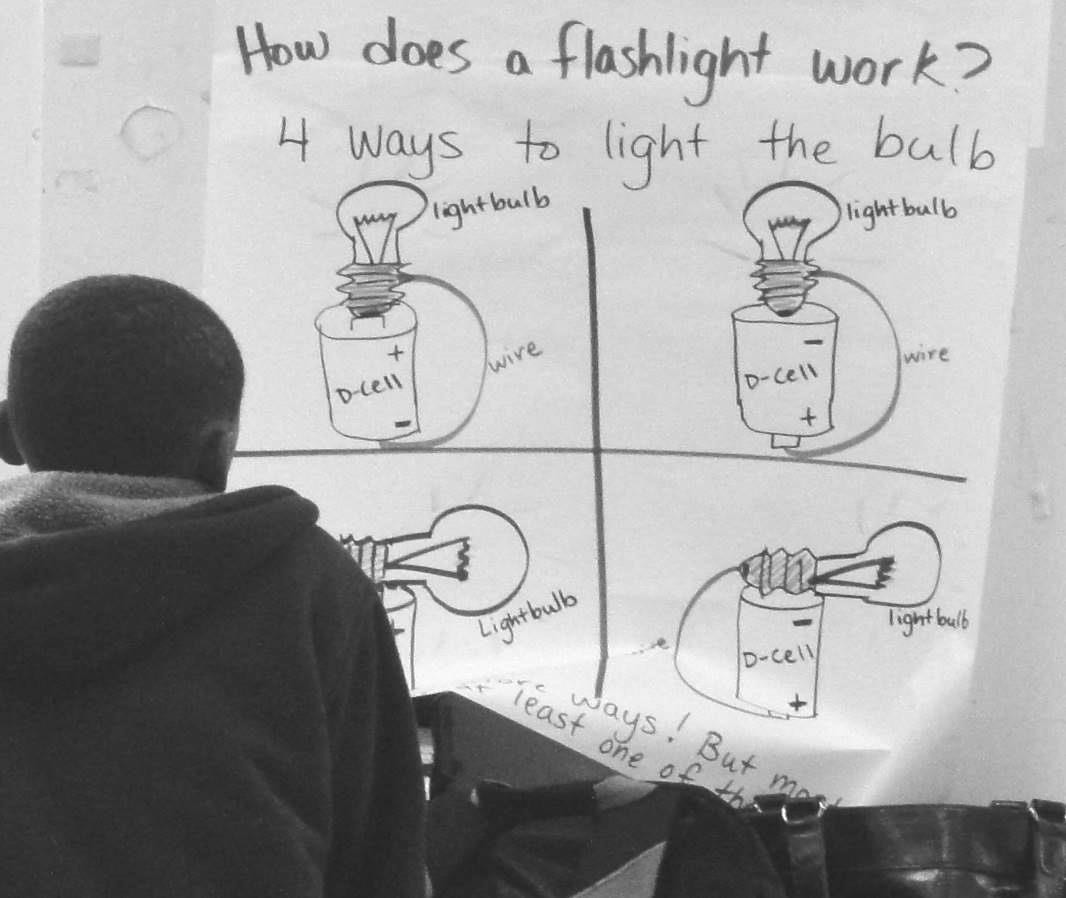 How does a flashlight work?
4 ways to light the bulb
lightbulb
+
D-cell
-
wire
lightbulb
-
D-cell
+
wire
Lightbulb
+
lightbulb
-
D-cell
+
ways! But
least one of